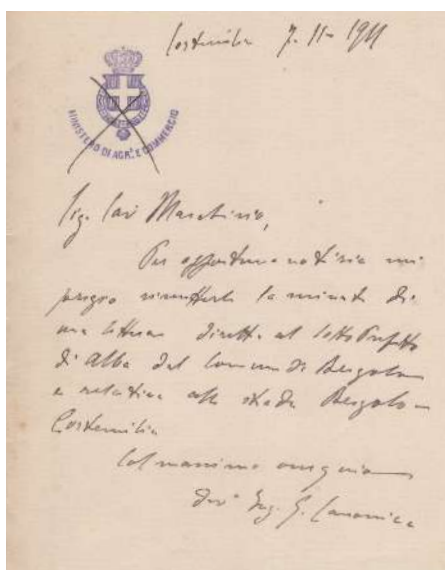 Cortemilia 7-11-1911
MINISTERO DI AGR. E COMMERCIO
Sig. Cav.
Per opportuna notizia mi
pregio rimetterle la minuta di
una lettera diretta al Sotto Prefetto
di Alba dal Comune di Bergolo
e relativa alla strada Bergolo -
Cortemilia
Col massimo ossequio
Dev.º Ing. G. Canonica